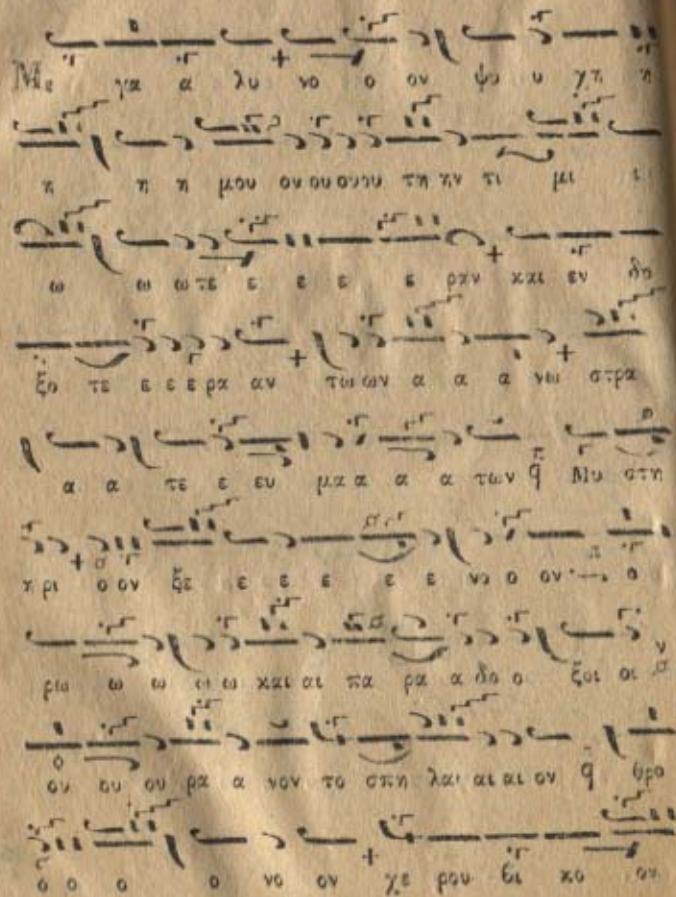 Με γα α λυ νο ο ον ψυ υ χη η
η η η μου ου ου ου ου τη ην τι μι ι
ω ω ω τε ε ε ε ε ραν και εν δο
ξο τε ε ε ε ρα αν τω ων α α α νω στρα
α α τε ε ευ μα α α α των q Μυ στη
η ρι ο ον ξε ε ε ε ε ε νο ο ον ο
ρω ω ω ω ω και αι πα ρα α δο ο ξοι οι
ου ου ου ρα α νον το σπη λαι αι αι ον q θρο
ο ο ο ο νο ον χε ρου βι κο ον